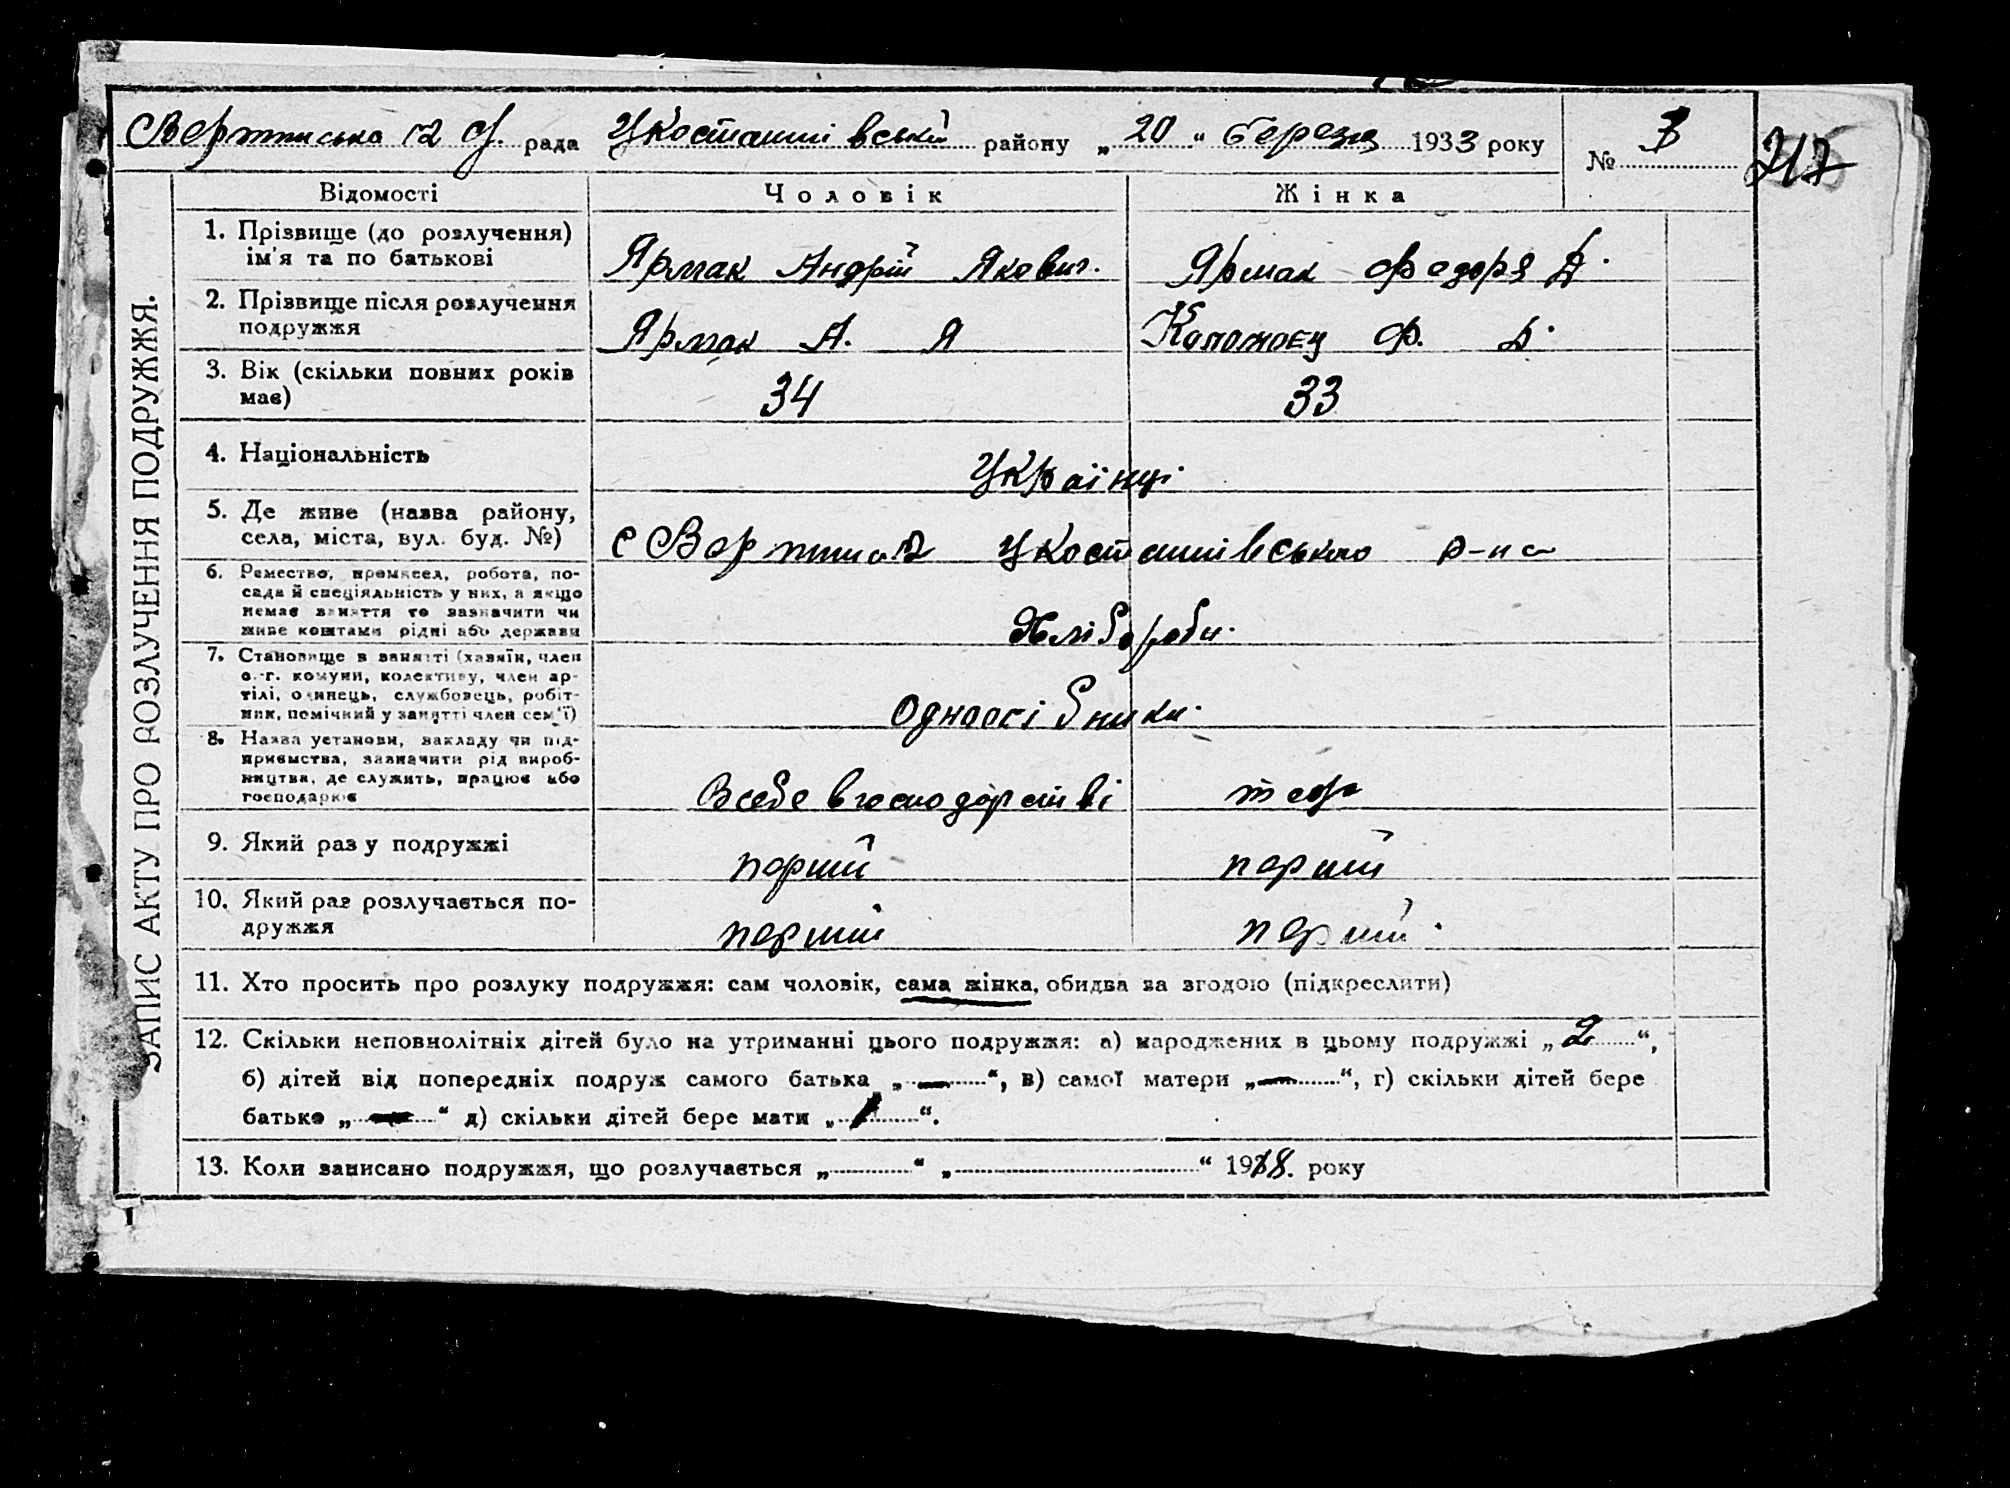 рада району „ 20 “ березня 1933 року № 3
217
ЗАПИС АКТУ ПРО РОЗЛУЧЕННЯ ПОДРУЖЖЯ.
Відомості Чоловік Жінка
1. Прізвище (до розлучення)
ім'я та по батькові Ярмак Андрій Якович. Ярмак Федоря Д.
2. Прізвище після розлучення
подружжя Ярмак А. Я Коломоєц Ф. Д.
3. Вік (скільки повних років
має) 34 33
4. Національність Українці
5. Де живе (назва району,
села, міста, вул. буд. №) с р-на
6. Ремество, промисел, робота, по-
сада й спеціяльність у них, а якщо
немає заняття то зазначити чи
живе коштами рідні або держави Хлібороби.
7. Становище в занятті (хазяїн, член
с.-г. комуни, колективу, член ар-
тілі, одинець, службовець, робіт-
ник, помічний у занятті член сем'ї) Одноосібники.
8. Назва установи, закладу чи під-
приємства, зазначити рід вироб-
ництва, де служить, працює або
господарює В себе в господарстві теж
9. Який раз у подружжі перший перший
10. Який раз розлучається по-
дружжя перший перший.
11. Хто просить про розлуку подружжя: сам чоловік, сама жінка, обидва за згодою (підкреслити)
12. Скільки неповнолітніх дітей було на утриманні цього подружжя: а) народжених в цьому подружжі „ 2 “,
б) дітей від попередніх подруж самого батька „ — “, в) самої матери „ — “, г) скільки дітей бере
батько „ — “ д) скільки дітей бере мати „ “.
13. Коли записано подружжя, що розлучається „ “ „ “ 1918. року